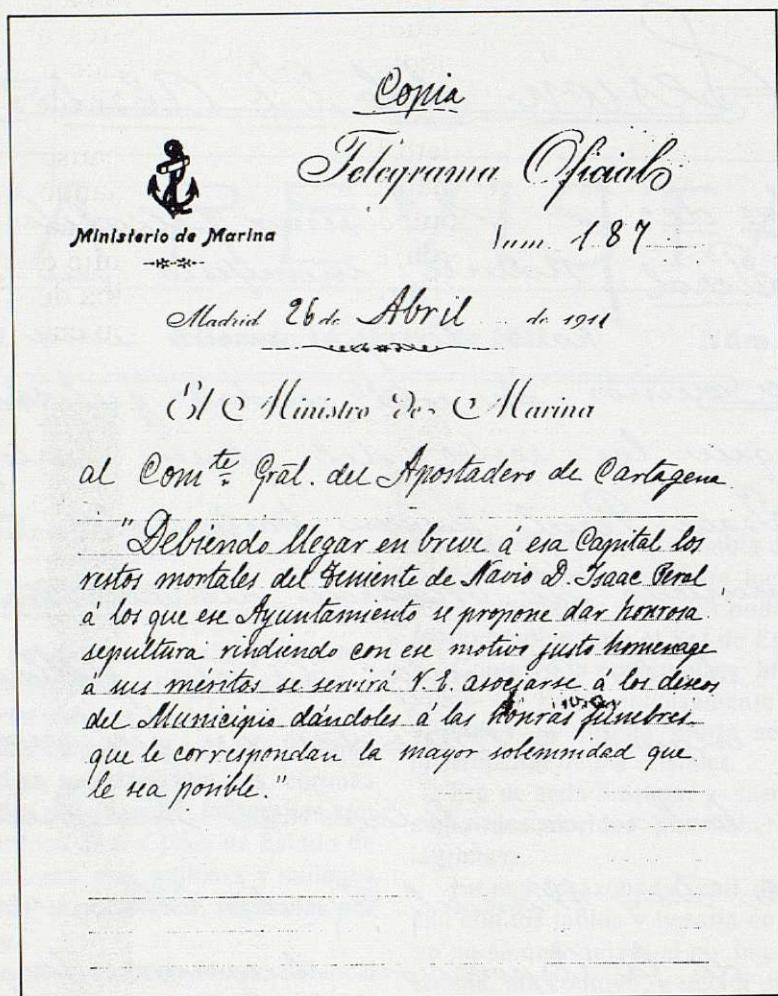 Copia
Telegrama Oficial
Ministerio de Marina
Num 187
Madrid 26 de Abril de 1911
El Ministro de Marina
al Comte Gral. del Apostadero de Cartagena
"Debiendo llegar en breve á esa Capital los
restos mortales del Teniente de Navio D. Isaac Peral
á los que ese Ayuntamiento se propone dar honrosa
sepultura rindiendo con ese motivo justo homenage
á sus méritos se servirá V.E. asociarse á los deseos
del Municipio dándoles á las honras fúnebres
que le correspondan la mayor solemnidad que
le sea posible."